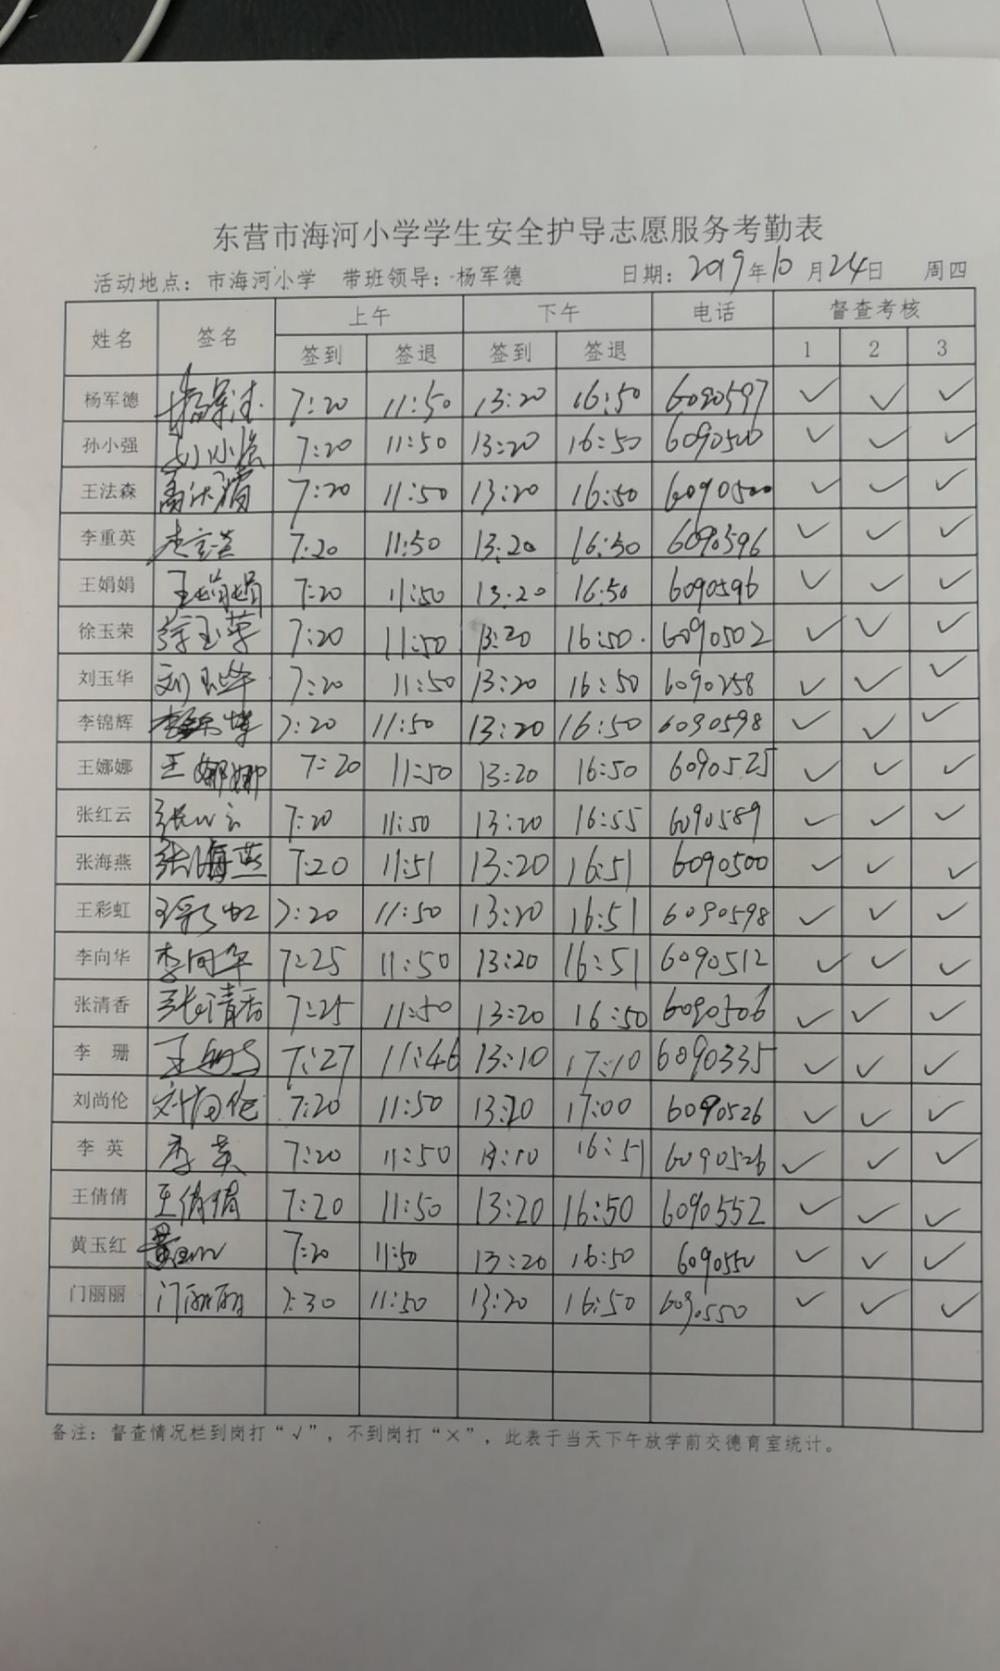 东营市海河小学学生安全护导志愿服务考勤表
活动地点：市海河小学 带班领导：杨军德 日期：2019年10月24日 周四
姓名 签名 上午 下午 电话 督查考核
签到 签退 签到 签退 1 2 3
杨军德 7:20 11:50 13:20 16:50 6090597 ✓ ✓ ✓
孙小强 7:20 11:50 13:20 16:50 6090500 ✓ ✓ ✓
王法森 7:20 11:50 13:20 16:50 6090500 ✓ ✓ ✓
李重英 7:20 11:50 13:20 16:50 6090596 ✓ ✓ ✓
王娟娟 王娟娟 7:20 11:50 13:20 16:50 6090596 ✓ ✓ ✓
徐玉荣 徐玉荣 7:20 11:50 13:20 16:50 6090502 ✓ ✓ ✓
刘玉华 刘玉华 7:20 11:50 13:20 16:50 6090258 ✓ ✓ ✓
李锦辉 7:20 11:50 13:20 16:50 6090598 ✓ ✓ ✓
王娜娜 王娜娜 7:20 11:50 13:20 16:50 6090525 ✓ ✓ ✓
张红云 张红云 7:20 11:50 13:20 16:55 6090589 ✓ ✓ ✓
张海燕 张海燕 7:20 11:51 13:20 16:51 6090500 ✓ ✓ ✓
王彩虹 王彩虹 7:20 11:50 13:20 16:51 6090598 ✓ ✓ ✓
李向华 李向华 7:25 11:50 13:20 16:51 6090512 ✓ ✓ ✓
张清香 张清香 7:25 11:50 13:20 16:50 6090506 ✓ ✓ ✓
李 珊 7:27 11:46 13:10 17:10 6090335 ✓ ✓ ✓
刘尚伦 刘尚伦 7:20 11:50 13:20 17:00 6090526 ✓ ✓ ✓
李 英 李英 7:20 11:50 13:10 16:51 6090526 ✓ ✓ ✓
王倩倩 王倩倩 7:20 11:50 13:20 16:50 6090552 ✓ ✓ ✓
黄玉红 黄玉红 7:20 11:50 13:20 16:50 6090550 ✓ ✓ ✓
门丽丽 门丽丽 7:30 11:50 13:20 16:50 6090550 ✓ ✓ ✓
备注：督查情况栏到岗打“√”，不到岗打“×”，此表于当天下午放学前交德育室统计。